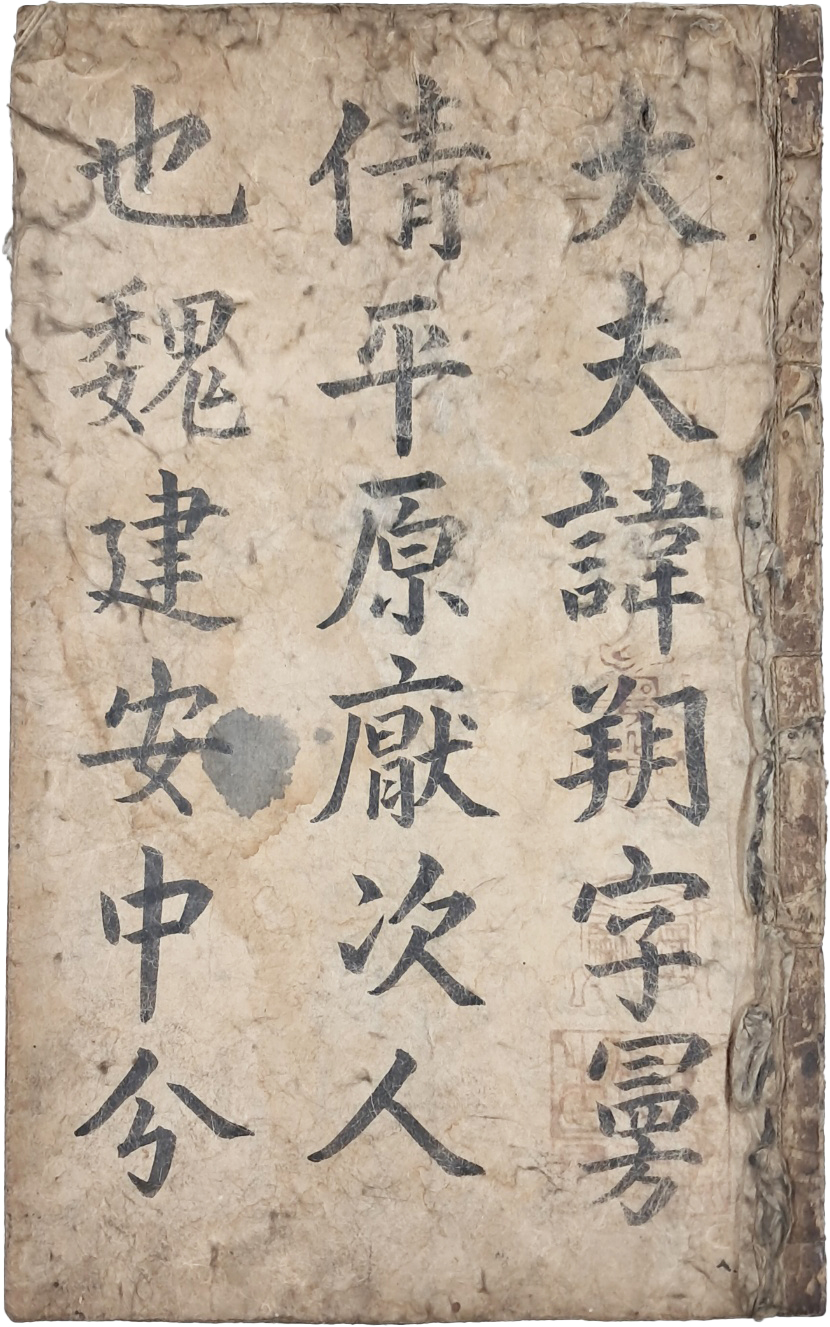 大夫諱朔字曼
倩平原厭次人
也魏建安中分